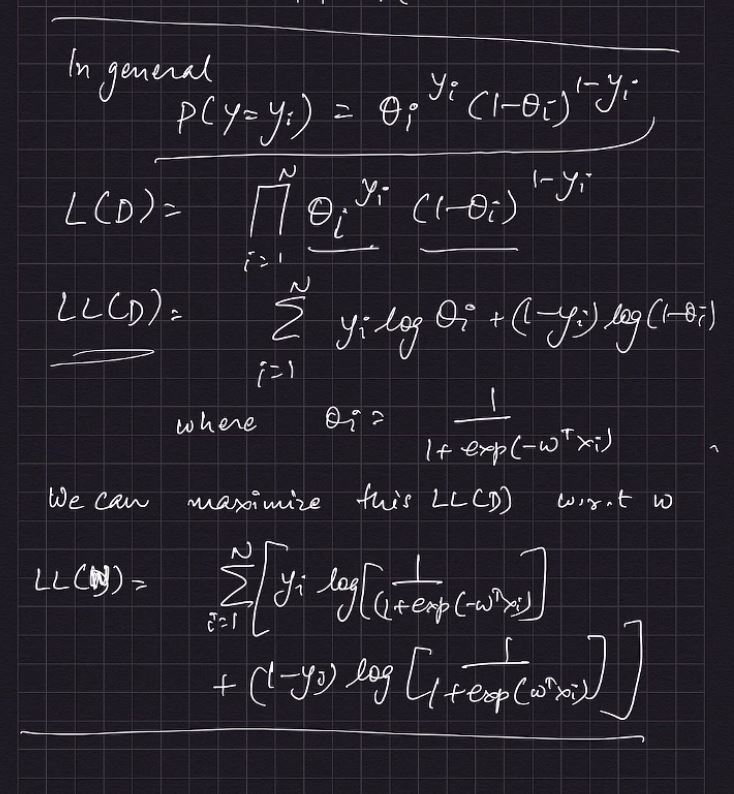 In general
P(y=yᵢ) = θᵢ^yᵢ (1-θᵢ)^1-yᵢ
L(D) = ∏_{i=1}^{N} θᵢ^yᵢ (1-θᵢ)^1-yᵢ
LL(D) = ∑_{i=1}^{N} yᵢ log θᵢ + (1-yᵢ) log (1-θᵢ)
where θᵢ = 1/(1+ exp(-wᵀxᵢ))
We can maximize this LL(D) w.r.t w
LL(W) = ∑_{i=1}^{N} [yᵢ log [1/(1+exp(-wᵀxᵢ))]
+ (1-yᵢ) log [1/(1+exp(wᵀxᵢ))]]